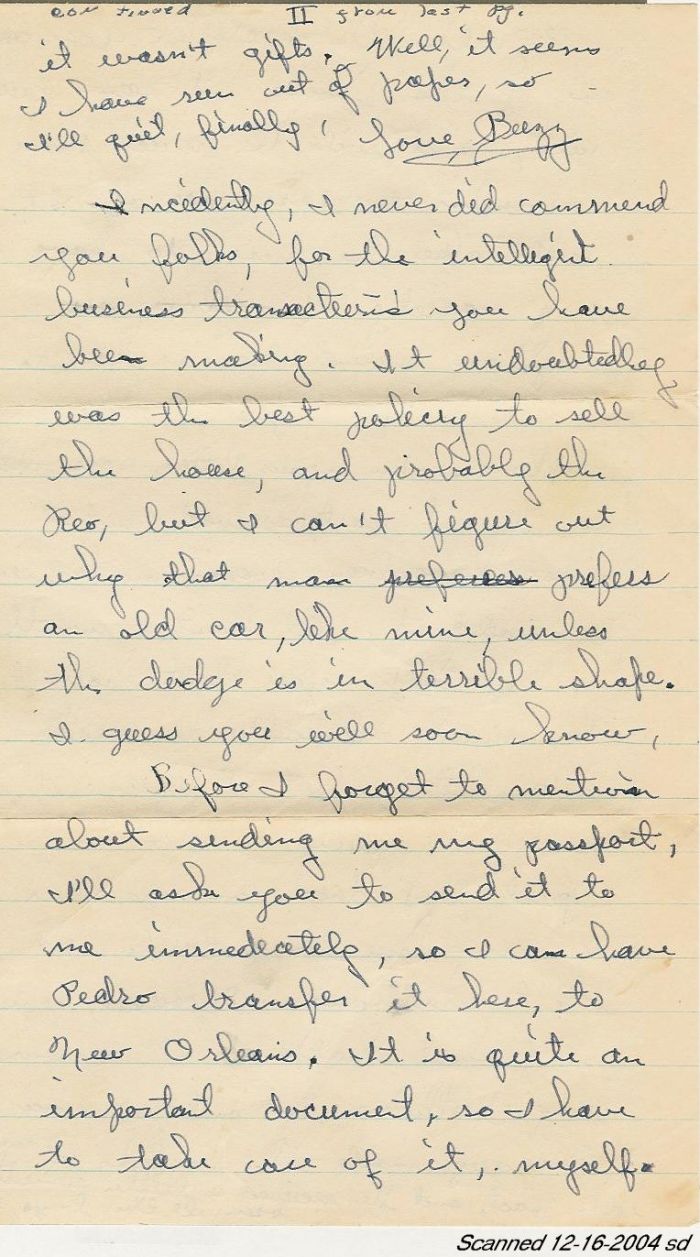 continued II from last pg.
it wasn't gifts. Well, it seems
I have run out of paper, so
I'll quit, finally, Love Buzzy
Incidently, I never did commend
you folks, for the intelligent
business transactions you have
been making. It undoubtedly
was the best policy to sell
the house, and probably the
Reo, but I can't figure out
why that man preferes prefers
an old car, like mine, unless
the dodge is in terrible shape.
I guess you will soon know,
Before I forget to mention
about sending me my passport,
I'll ask you to send it to
me immediately, so I can have
Pedro transfer it here, to
New Orleans. It is quite an
important document, so I have
to take care of it, myself.
Scanned 12-16-2004 sd